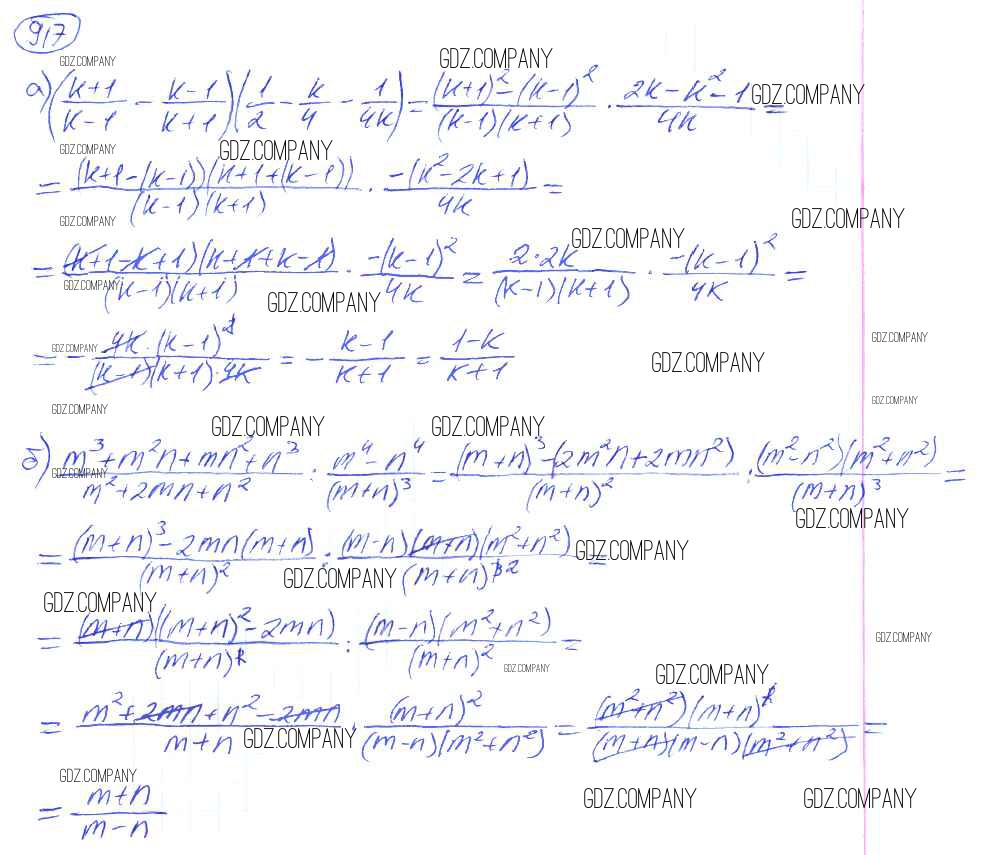 917
GDZ.COMPANY GDZ.COMPANY
а) ((k+1)/(k-1) - (k-1)/(k+1)) (1/2 - k/4 - 1/4k) = ((k+1)² - (k-1)²)/((k-1)(k+1)) · (2k - k² - 1)/4k = GDZ.COMPANY
GDZ.COMPANY GDZ.COMPANY
= ((k+1-(k-1))(k+1+(k-1)))/((k-1)(k+1)) · (-(k²-2k+1))/4k =
GDZ.COMPANY GDZ.COMPANY
GDZ.COMPANY
= ((k+1-k+1)(k+1+k-1))/((k-1)(k+1)) · (-(k-1)²)/4k = (2·2k)/((k-1)(k+1)) · (-(k-1)²)/4k =
GDZ.COMPANY GDZ.COMPANY
= - (4k·(k-1)²)/((k-1)(k+1)·4k) = - (k-1)/(k+1) = (1-k)/(k+1)
GDZ.COMPANY GDZ.COMPANY GDZ.COMPANY
GDZ.COMPANY GDZ.COMPANY
GDZ.COMPANY GDZ.COMPANY
б) (m³+m²n+mn²+n³)/(m²+2mn+n²) : (m⁴-n⁴)/(m+n)³ = ((m+n)³-(2m²n+2mn²))/(m+n)² : ((m²-n²)(m²+n²))/(m+n)³ =
GDZ.COMPANY
GDZ.COMPANY
= ((m+n)³-2mn(m+n))/(m+n)² : ((m-n)(m+n)(m²+n²))/(m+n)³² =
GDZ.COMPANY GDZ.COMPANY
GDZ.COMPANY
= ((m+n)((m+n)²-2mn))/(m+n)² : ((m-n)(m²+n²))/(m+n)² =
GDZ.COMPANY GDZ.COMPANY
GDZ.COMPANY
= (m²+2mn+n²-2mn)/(m+n) · (m+n)²/((m-n)(m²+n²)) = ((m²+n²)(m+n)²)/((m+n)(m-n)(m²+n²)) =
GDZ.COMPANY
GDZ.COMPANY
= (m+n)/(m-n)
GDZ.COMPANY GDZ.COMPANY